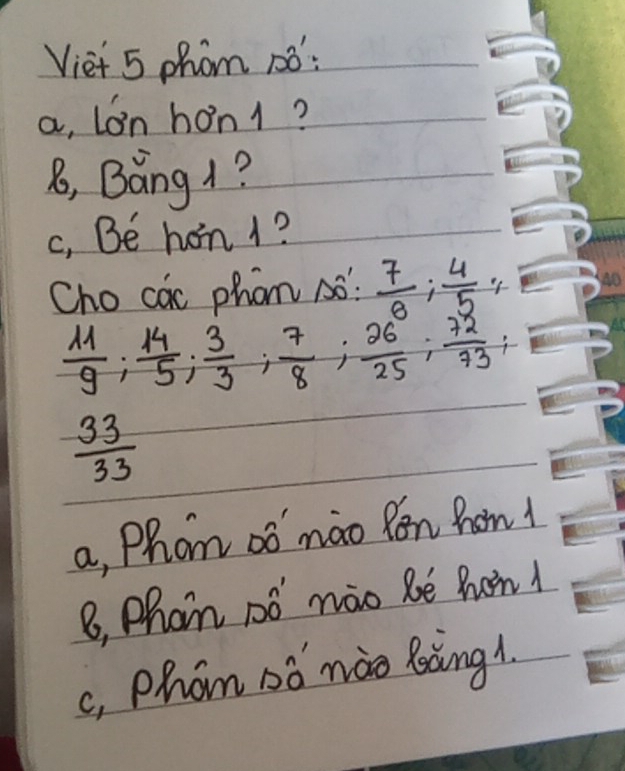 Viết 5 phâm số:
a, Lớn hơn 1 ?
b, Bằng 1 ?
c, Bé hơn 1 ?
Cho các phâm số: 7/8 ; 4/5 ;
11/9 ; 14/5 ; 3/3 ; 7/8 ; 26/25 ; 72/73 ;
33/33
a, Phâm số nào lớn hơn 1
b, Phân số nào bé hơn 1
c, Phân số nào bằng 1.